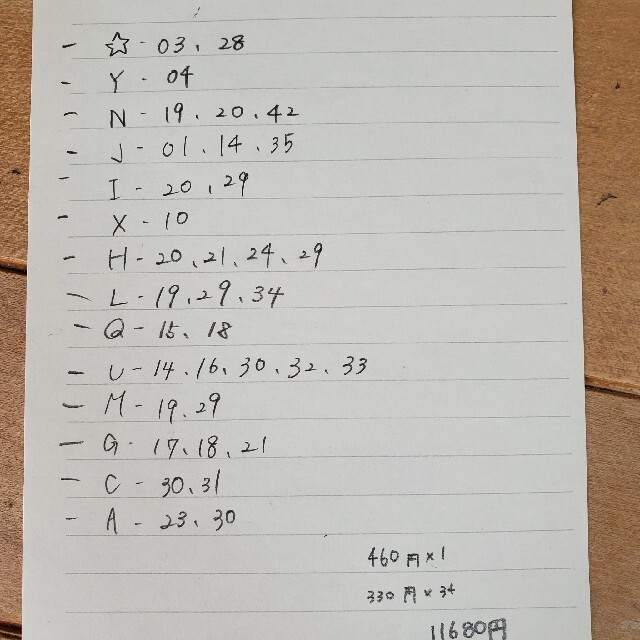 - ☆ - 03、28
- Y - 04
- N - 19、20、42
- J - 01、14、35
- I - 20、29
- X - 10
- H - 20、21、24、29
- L - 19、29、34
- Q - 15、18
- U - 14、16、30、32、33
- M - 19、29
- G - 17、18、21
- C - 30、31
- A - 23、30
460円×1
330円×34
11680円